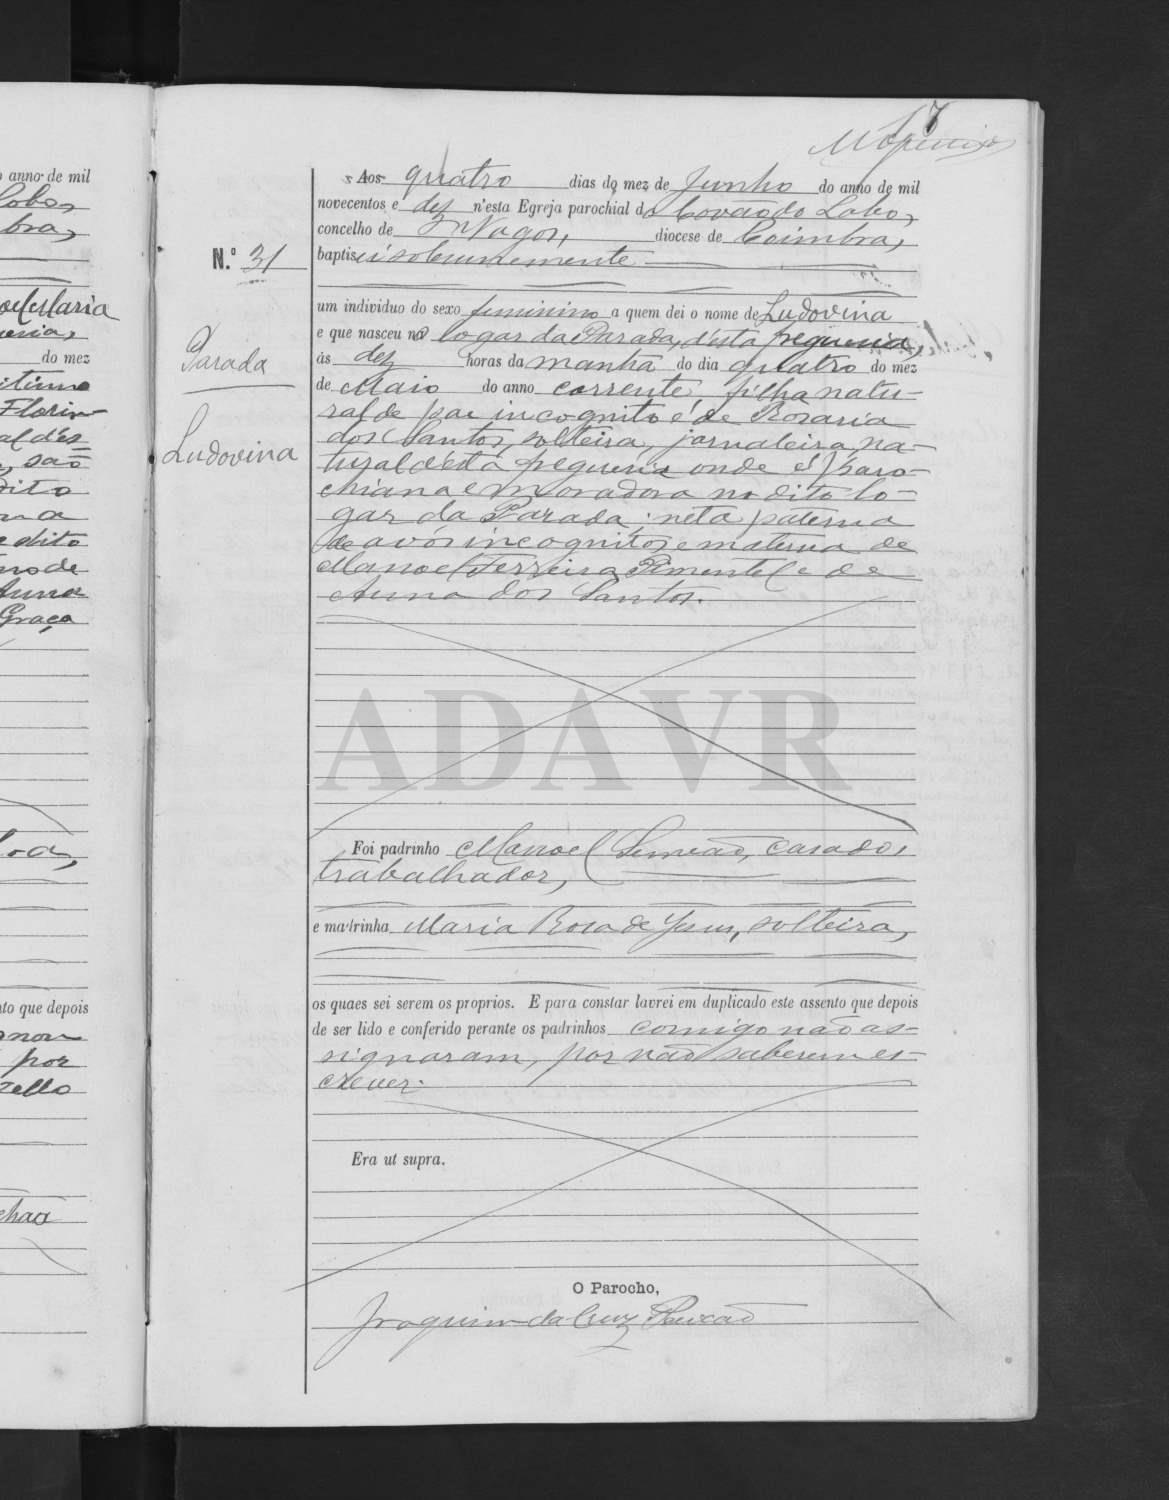 17
o anno de mil
Lobo,
bra,
Maria
do mez
Florin-
al d'és
, são
dito
e dito
mo de
Anna
Graça
nto que depois
por
Aos quatro dias do mez de Junho do anno de mil
novecentos e dez n'esta Egreja parochial do Covão do Lobo,
concelho de Vagos, diocese de Coimbra,
N.º 31
baptisei solemnemente
um individuo do sexo feminino a quem dei o nome de Ludovina
e que nasceu no logar da Parada, d'esta freguesia,
Parada
ás dez horas da manhã do dia quatro do mez
de Maio do anno corrente, filha natu-
ral de pae incognito e de Rosaria
dos Santos, solteira, jornaleira, na-
Ludovina
tural d'esta freguesia onde é paro-
chiana e moradora no dito lo-
gar da Parada; neta paterna
de avós incognitos e materna de
Manoel Ferreira Pimentel e de
Anna dos Santos.
ADAVR
Foi padrinho Manoel Simeão, casado,
trabalhador,
e madrinha Maria Rosa de Jesus, solteira,
os quaes sei serem os proprios. E para constar lavrei em duplicado este assento que depois
de ser lido e conferido perante os padrinhos comigo não as-
signaram, por não saberem es-
crever.
Era ut supra.
O Parocho,
Joaquim da Cruz